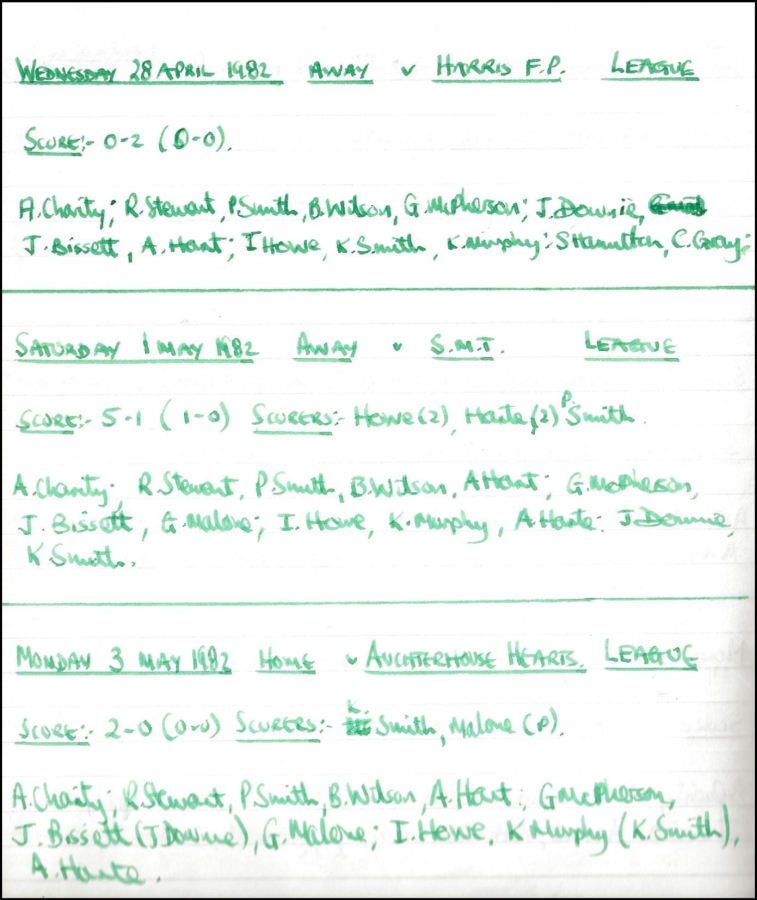 WEDNESDAY 28 APRIL 1982 AWAY v HARRIS F.P. LEAGUE
SCORE:- 0-2 (0-0).
A.Charity; R.Stewart, P.Smith, B.Wilson, G.McPherson; J.Downie,
J.Bissett, A.Hart; I Howe, K.Smith, K.Murphy: S Hamilton, C.Gray;
SATURDAY 1 MAY 1982 AWAY v S.M.T. LEAGUE
SCORE:- 5-1 (1-0) SCORERS:- Howe(2), Harte(2) P.Smith.
A.Charity; R.Stewart, P.Smith, B.Wilson, A Hart; G.McPherson,
J. Bissett, G.Malone; I. Howe, K.Murphy, A.Harte: J.Downie,
K Smith.
MONDAY 3 MAY 1982 HOME v AUCHTERHOUSE HEARTS. LEAGUE
SCORE:- 2-0 (0-0) SCORERS:- K. Smith, Malone (P).
A.Charity; R.Stewart, P.Smith, B.Wilson, A.Hart; G McPherson,
J.Bissett (J Downie), G.Malone; I.Howe, K Murphy (K.Smith),
A.Harte.